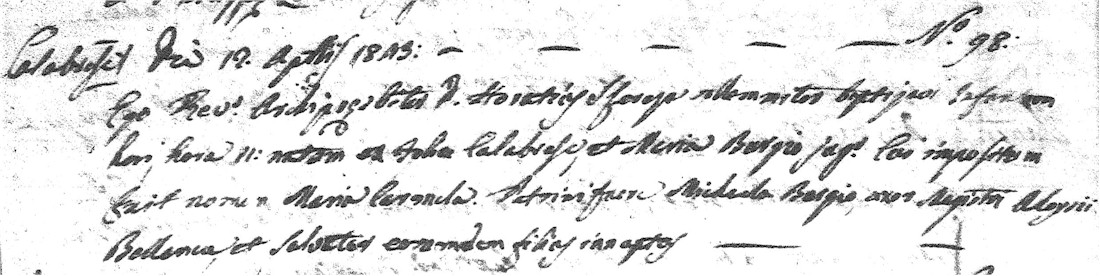 Calabrese Die 12. Aprilis 1843: — — — — — N.° 98:
Ego Rev.s Archipresbiter D. Horatius Sforza solemniter baptizavi infantem
hodie hora 11: natam ex Calabrese et Maria Borgio jug. Cui impositum
fuit nomen Maria Carmela. Patrini fuere Michaela Borgio, uxor Magistri Aloysii
Bellanca, et Salvator eorumdem filius innuptus — —